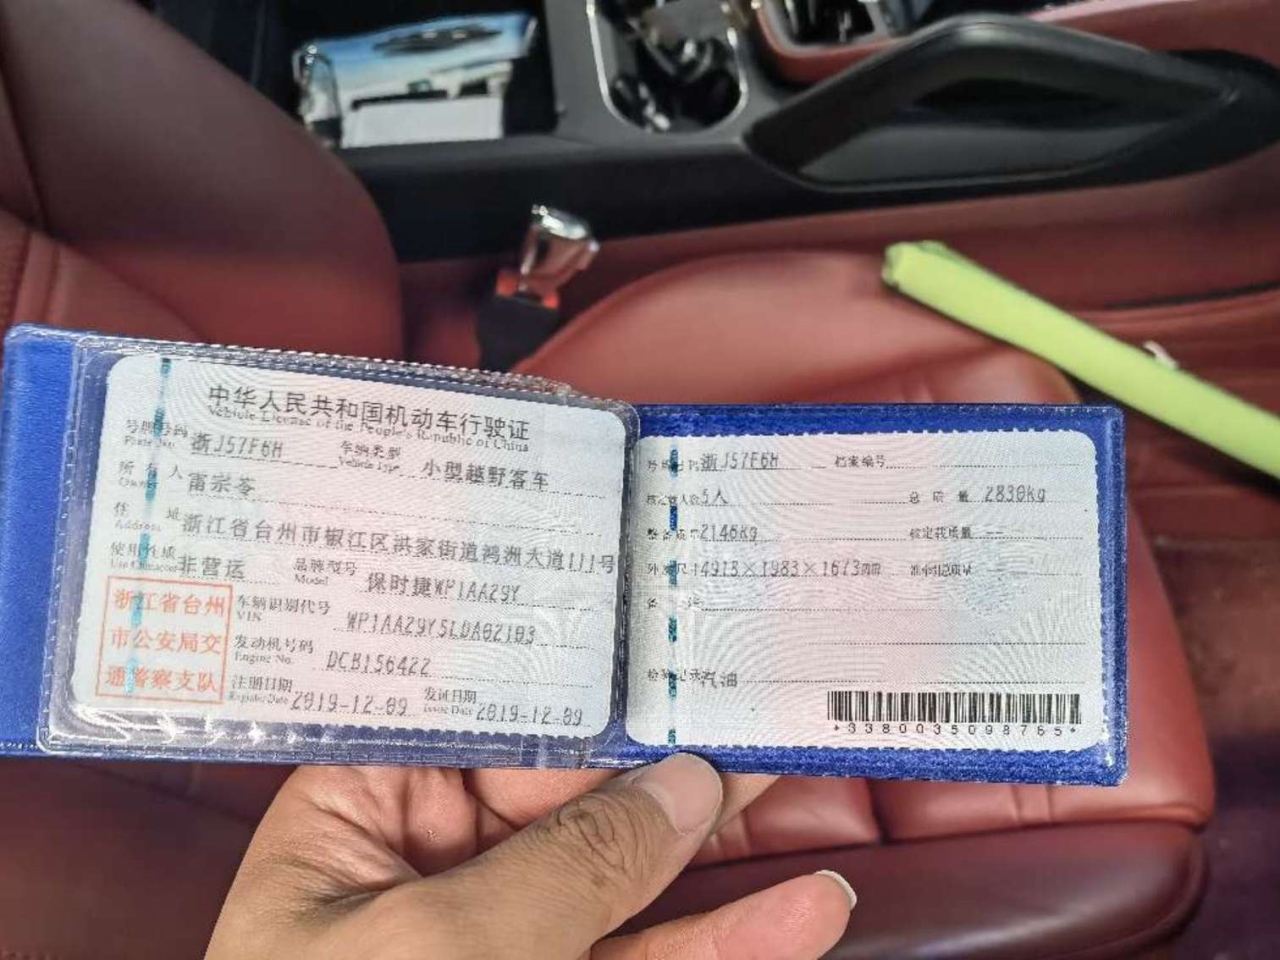 中华人民共和国机动车行驶证
Vehicle License of the People's Republic of China
号牌号码 浙J57F6H 车辆类型 小型越野客车
Plate No. Vehicle Type
所有人 雷宗苓
Owner
住 址 浙江省台州市椒江区洪家街道鸿洲大道111号
Address
使用性质 非营运 品牌型号 保时捷WP1AA29Y
Use Character Model
浙江省台州
市公安局交
通警察支队
车辆识别代号 WP1AA29Y5LDA02103
VIN
发动机号码 DCB156422
Engine No.
注册日期 2019-12-09 发证日期 2019-12-09
Register Date Issue Date
号牌号码 浙J57F6H 档案编号
核定载人数 5人 总 质 量 2830kg
整备质量 2146kg 核定载质量 --
外廓尺寸 4918×1983×1673mm 准牵引总质量
备 注
检验记录 汽油
*3380035098765*